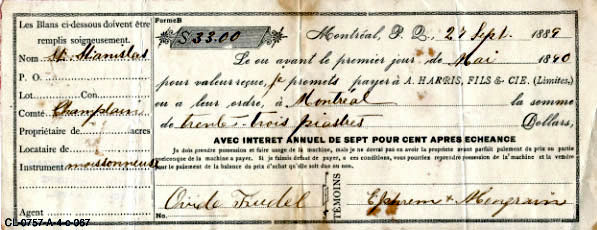 Les Blans ci-dessous doivent être
remplis soigneusement.
Nom St. Stanislas
P. O.
Lot Con.
Comté. Champlain
Propriétaire de acres
Locataire de
Instrument moissonneuse
Agent
Forme B
$ 33.00
Montréal, P. Q. 27 Sept. 1889
Le ou avant le premier jour de Mai 1890
pour valeur reçue, je promets payer à A. HARRIS, FILS & CIE. (Limitee,)
ou a leur ordre, à Montréal la somme
de trente-trois piastres Dollars,
AVEC INTERET ANNUEL DE SEPT POUR CENT APRES ECHEANCE
Je dois prendre possession et faire usage de la machine, mais je ne devrai pas en avoir la propriété avant parfait paiement du prix ou partie
périodique de la machine a payer. Si je faisais defaut de payer, a ces conditions, vous pourriez reprendre possession de la machine et la vendre
pour le paiement de la balance du prix d'achat qu'elle soit due ou non.
Ovide Trudel
TÉMOINS
Ephrem Mongrain
No.
CL-0757-A-4-c-067